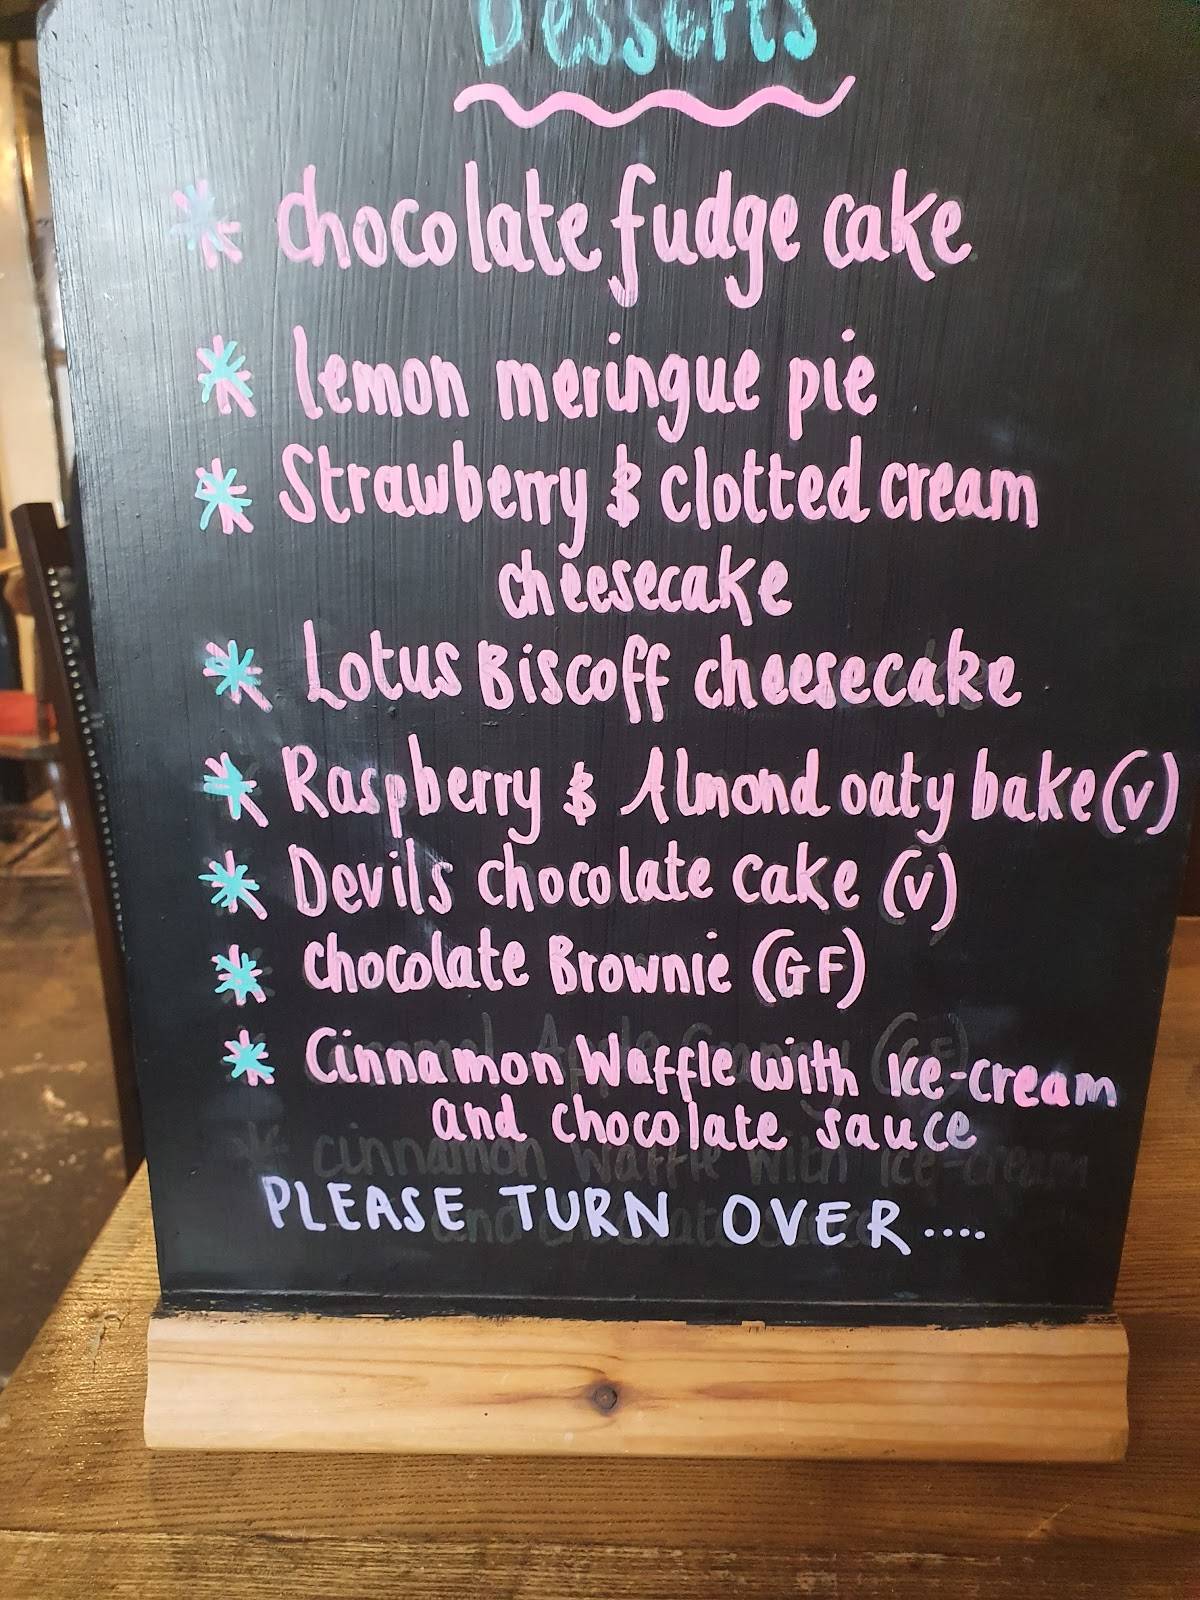 Desserts
* chocolate fudge cake
* lemon meringue pie
* Strawberry & clotted cream
cheesecake
* Lotus Biscoff cheesecake
* Raspberry & Almond oaty bake (v)
* Devils chocolate cake (v)
* chocolate Brownie (GF)
* Cinnamon Waffle with Ice-cream
and chocolate sauce
* cinnamon waffle with ice-cream
PLEASE TURN OVER....
and chocolate sauce